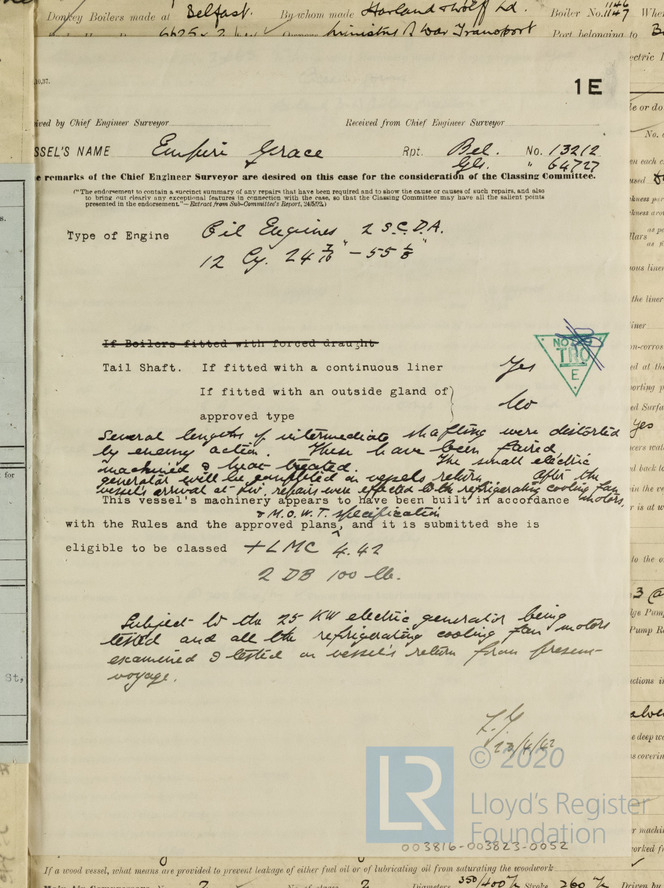 Donkey Boilers made at Belfast. By whom made Harland & Wolf Ld. Boiler No. 1146 1147
6625 x 2 Owners Ministry of War Transport Port belonging to
10,37.
1E
ived by Chief Engineer Surveyor Received from Chief Engineer Surveyor
SSEL'S NAME Empire Grace Rpt. Bel. No. 13212
Gls. " 64727
e remarks of the Chief Engineer Surveyor are desired on this case for the consideration of the Classing Committee.
("The endorsement to contain a succinct summary of any repairs that have been required and to show the cause or causes of such repairs, and also
to bring out clearly any exceptional features in connection with the case, so that the Classing Committee may have all the salient points
presented in the endorsement."—Extract from Sub-Committee's Report,
Type of Engine Oil Engines 2 S.C.D.A.
12 Cy. 24 7/16" - 55 1/8"
If Boilers fitted with forced draught
NO
TRO
E
Tail Shaft. If fitted with a continuous liner Yes
If fitted with an outside gland of
approved type No
Several lengths of intermediate shafting were distorted
by enemy action. These have been faired,
machined & heat treated. The small electric
generator will be completed on vessels return. After the
vessel's arrival at KW. repairs were effected to the refrigerating cooling fan
motors.
This vessel's machinery appears to have been built in accordance
& M.O.W.T. specification
with the Rules and the approved plans, and it is submitted she is
eligible to be classed +LMC 4.42
2 DB 100 lb.
Subject to the 25 KW electric generator being
tested and all the refrigerating cooling fan motors
examined & tested on vessel's return from present
voyage.
© 2020
LR
Lloyd's Register
Foundation
003816-003823-0052
If a wood vessel, what means are provided to prevent leakage of either fuel oil or of lubricating oil from saturating the woodwork